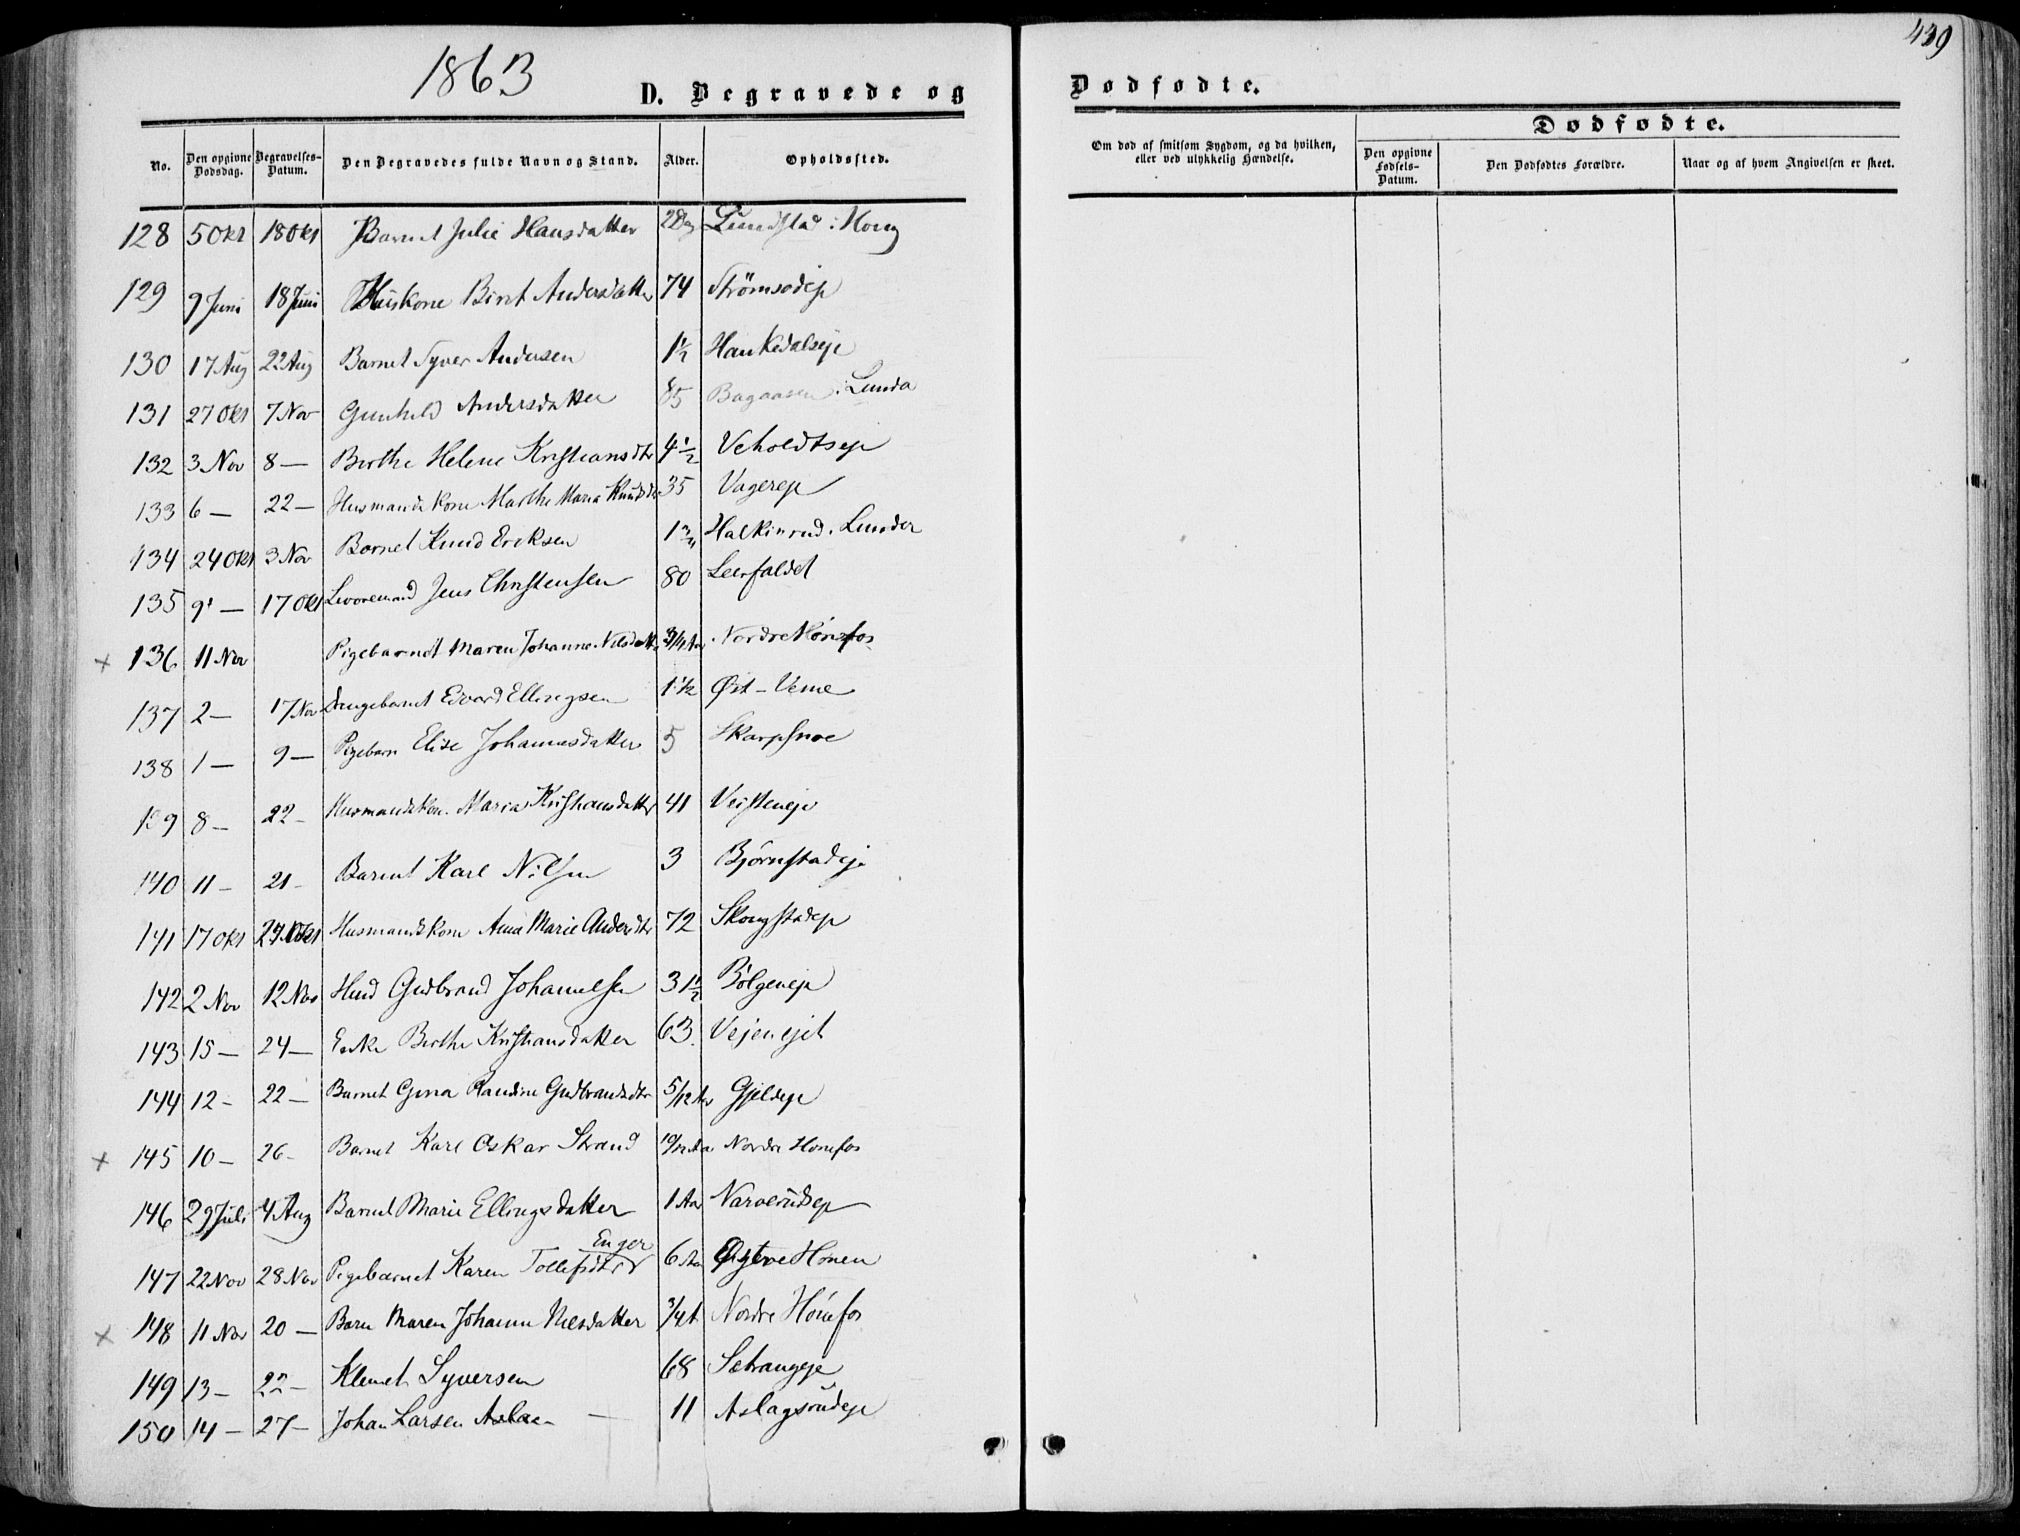 1863
439
D. Begravede og
Dødfødte.
No. Den opgivne Dødsdag. Begravelses-Datum. Den Begravedes fulde Navn og Stand. Alder. Opholdssted.
Om død af smitsom Sygdom, og da hvilken, eller ved ulykkelig Hændelse.
Dødfødte.
Den opgivne Fødsels-Datum. Den Dødfødtes Forældre. Naar og af hvem Angivelsen er skeet.
128 5 Okt 18 Okt Barnet Julie Hansdatter 2 Dg Lundstad i Houg
129 9 Juni 18 Juni Huskone Birit Andersdatter 74 Strømsodejе
130 17 Aug 22 Aug Barnet Syver Andersen 1½ Haukedalseje
131 27 Okt 7 Nov Gunhild Andersdatter 85 Bagaasen i Lunda
132 3 Nov 8 — Berthe Helene Kristiansdtr 4½ Veholdtseje
133 6 — 22 — Husmandskone Marthe Maria Knudsdtr 35 Vagereje
134 24 Okt 3 Nov Barnet Knud Eriksen 1¾ Halkinrud i Lunder
135 9 — 17 Okt Jens Christensen 80 Leerfaldet
+ 136 11 Nov Pigebarnet Maren Johanne Nilsdatt 3/4 Aar Nordre Hønefos
137 2 — 17 Nov Drengebarnet Edvard Ellingsen 1½ Øst-Veme
138 1 — 9 — Pigebarn Elise Johannesdatter 5 Skarpsnoe
139 8 — 22 — Husmandskon. Maria Kristiansdatter 41 Veisteneje
140 11 — 21 — Barnet Karl Nilsen 3 Bjørnstadeje
141 17 Okt Husmandskone Anna Marie Andersdtr 72 Skougstadeje
142 2 Nov 12 Nov Gudbrand Johannessen 31½ Bølgeneje
143 15 — 24 — Enke Berthe Kristiansdatter 63. Vejenejet
144 12 — 22 — Barnet Gina Randine Gudbrandsdtr 5/12 Aar Gjeldeje
+ 145 10 — 26 — Barnet Karl Oskar Strand 10/12 Aar Nordre Hønefos
146 29 Juli 4 Aug Barnet Marie Ellingsdatter 1 Aar Narverudseje
Enger
147 22 Nov 28 Nov Pigebarnet Karen Tollefsdtr 6 Aar Øgtre Hønen
+ 148 11 Nov 20 — Barn Maren Johanne Nilsdatter 3/4 Nordre Hønefos
149 13 — 22 — Klemet Syversen 68 Setrangeje
150 14 — 27 — Johan Larsen — 11 Aslagsrudeje